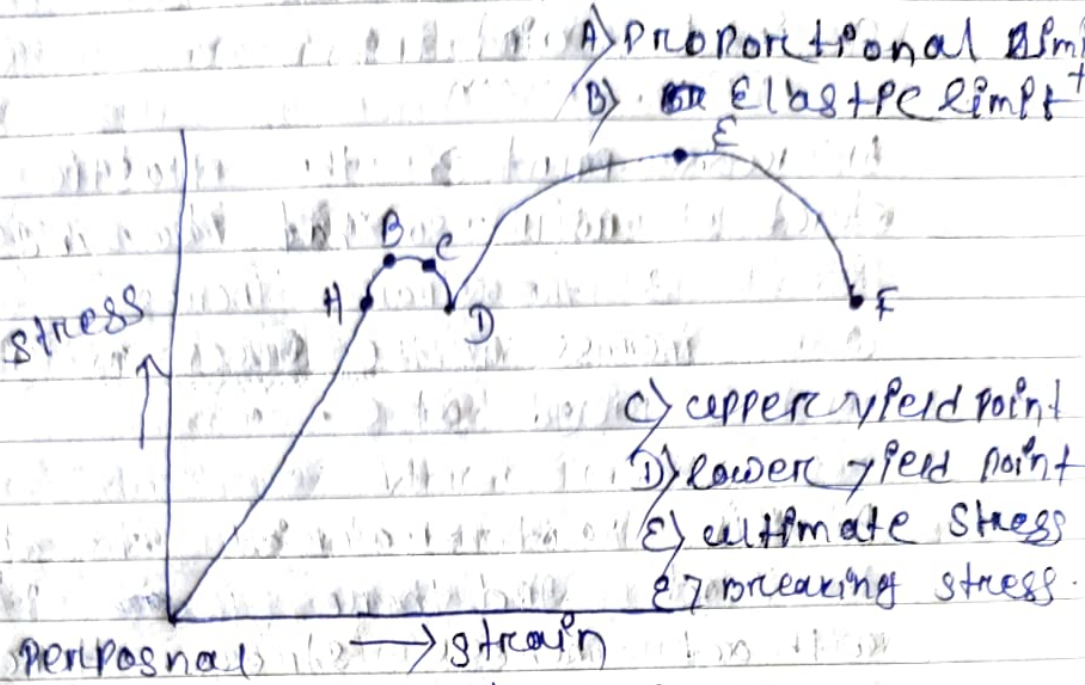 A) Proportional limi
B) Elastic limit
E
B
C
A
D
F
stress
C) upper yield point
D) lower yield point
E) ultimate stress
E) Breaking stress.
strain